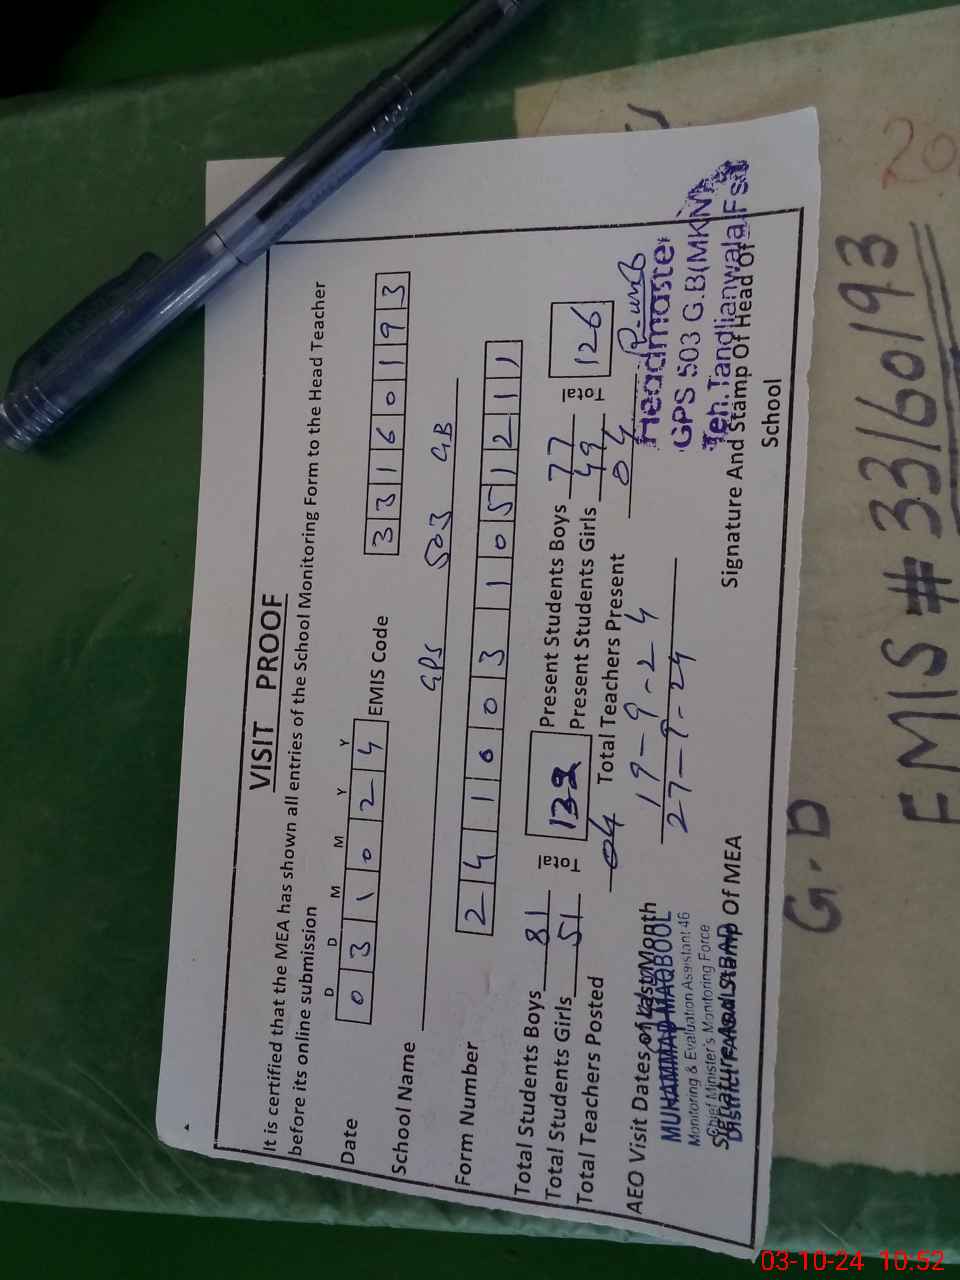 VISIT PROOF
It is certified that the MEA has shown all entries of the School Monitoring Form to the Head Teacher
before its online submission
D D M M Y Y
Date 0 3 1 0 2 4 EMIS Code 3 3 1 6 0 1 9 3
School Name GPS 503 GB
Form Number 2 4 1 0 0 3 1 0 5 1 2 1 1
Total Students Boys 81 Total 132 Present Students Boys 77 Total 126
Total Students Girls 51 Present Students Girls 49
Total Teachers Posted 04 Total Teachers Present 04
AEO Visit Dates of Last Month 19-9-24
27-9-24
MUHAMMAD MAQBOOL
Monitoring & Evaluation Assistant 46
Chief Minister's Monitoring Force
District FAISALABAD
Signature And Stamp Of MEA
Headmaster
GPS 503 G.B(MKN)
Teh. Tandlianwala Fsd
Signature And Stamp Of Head Of
School
G.D
EMIS # 33160193
20
03-10-24 10:52